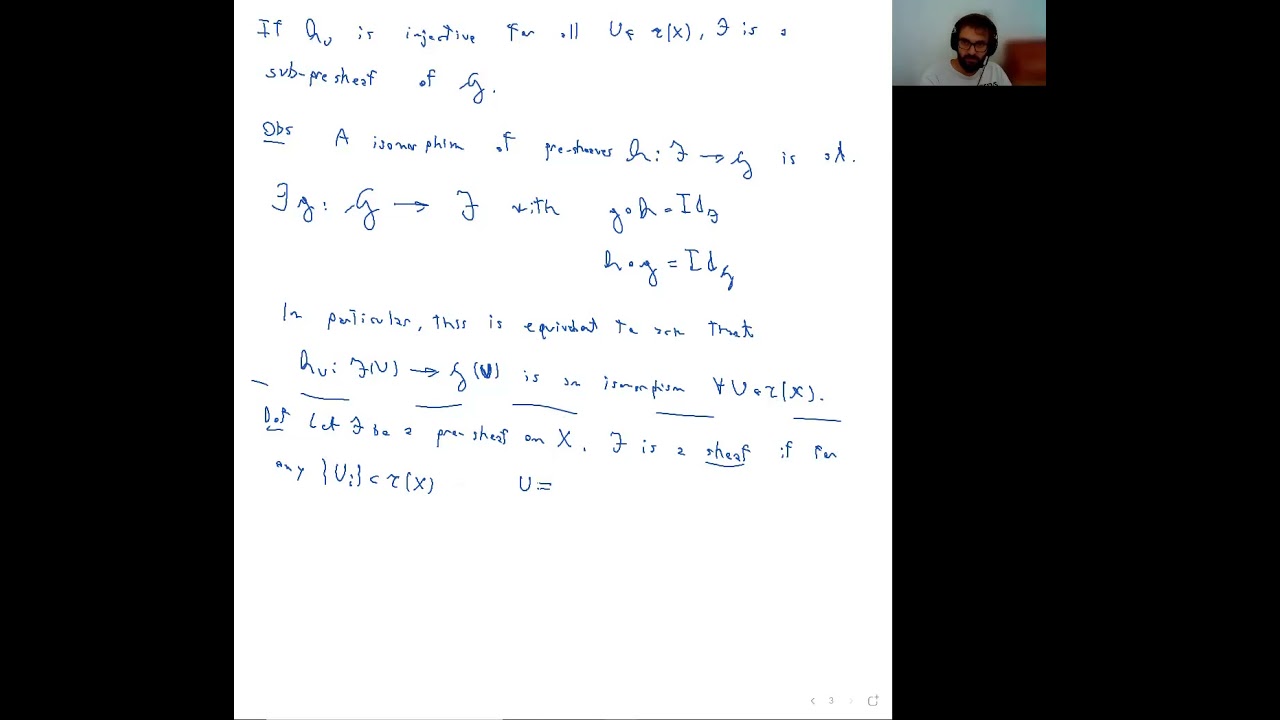 If h_U is injective for all U ∈ τ(X), F is a
sub-presheaf of G.
Obs A isomorphism of pre-sheaves h: F → G is st.
∃ g: G → F with g∘h = Id_F
h∘g = Id_G
In particular, this is equivalent to ask that
h_U: F(U) → G(U) is an isomorphism ∀ U ∈ τ(X).
Def Let F be a pre-sheaf on X. F is a sheaf if for
any {U_i} ⊂ τ(X) U =
3